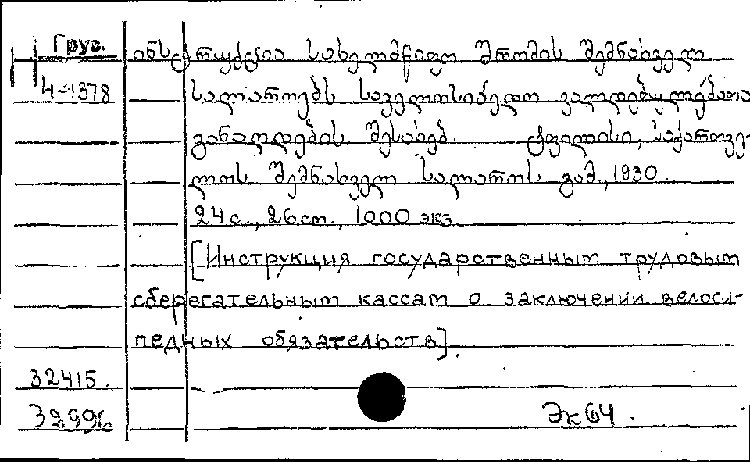 Груз.
4-1378
ინსტრუქცია სახელმწიფო შრომის შემნახველ
სალაროებს საველოსიპედო ვალდებულებათა
განაღდების შესახებ. ტფილისი, საქართვე-
ლოს შემნახველ სალაროს გამ., 1930.
24 с., 26 см., 1000 экз.
[Инструкция государственным трудовым
сберегательным кассам о заключении велоси-
педных обязательств]
32415.
Эк 64.